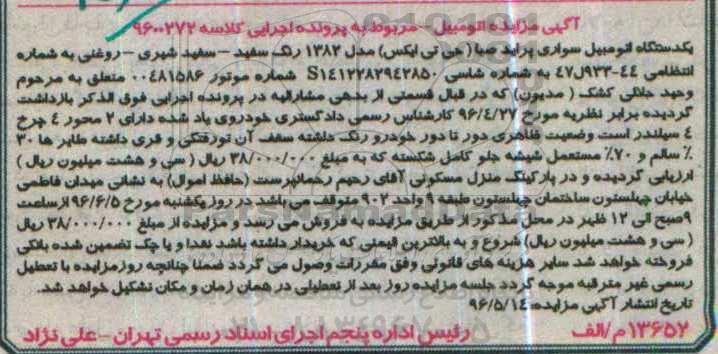 آگهی مزایده اتومبیل - مربوط به پرونده اجرایی کلاسه ۹۶۰۰۲۷۲
یکدستگاه اتومبیل سواری پراید صبا (جی تی ایکس) مدل ۱۳۸۲ رنگ سفید - سفید شیری - روغنی به شماره
انتظامی ۴۴-۹۳۳ل۴۷ به شماره شاسی S۱۴۱۲۲۸۲۹۴۲۸۵۰ شماره موتور ۰۰۴۸۱۵۸۶ متعلق به مرحوم
وحید جلالی کشک (مدیون) که در قبال قسمتی از بدهی مشارالیه در پرونده اجرایی فوق الذکر بازداشت
گردیده برابر نظریه مورخ ۹۶/۴/۲۷ کارشناس رسمی دادگستری خودروی یاد شده دارای ۲ محور ۴ چرخ
۴ سیلندر است وضعیت ظاهری دور تا دور خودرو رنگ داشته سقف آن تورفتگی و قری داشته طایر ها ۳۰
٪ سالم و ۷۰٪ مستعمل شیشه جلو کامل شکسته که به مبلغ ۳۸/۰۰۰/۰۰۰ ریال (سی و هشت میلیون ریال)
ارزیابی گردیده و در پارکینگ منزل مسکونی آقای رحیم رحمانپرست (حافظ اموال) به نشانی میدان فاطمی
خیابان چهلستون ساختمان چهلستون طبقه ۹ واحد ۹۰۲ متوقف می باشد در روز یکشنبه مورخ ۹۶/۶/۵ از ساعت
۹ صبح الی ۱۲ ظهر در محل مذکور از طریق مزایده به فروش می رسد و مزایده از مبلغ ۳۸/۰۰۰/۰۰۰ ریال
(سی و هشت میلیون ریال) شروع و به بالاترین قیمتی که خریدار داشته باشد نقدا و یا چک تضمین شده بانکی
فروخته خواهد شد سایر هزینه های قانونی وفق مقررات وصول می گردد ضمنا چنانچه روز مزایده با تعطیل
رسمی غیر مترقبه موجه گردد جلسه مزایده روز بعد از تعطیلی در همان زمان و مکان تشکیل خواهد شد.
تاریخ انتشار آگهی مزایده: ۹۶/۵/۱۴
۱۳۶۵۲/م الف رئیس اداره پنجم اجرای اسناد رسمی تهران - علی نژاد